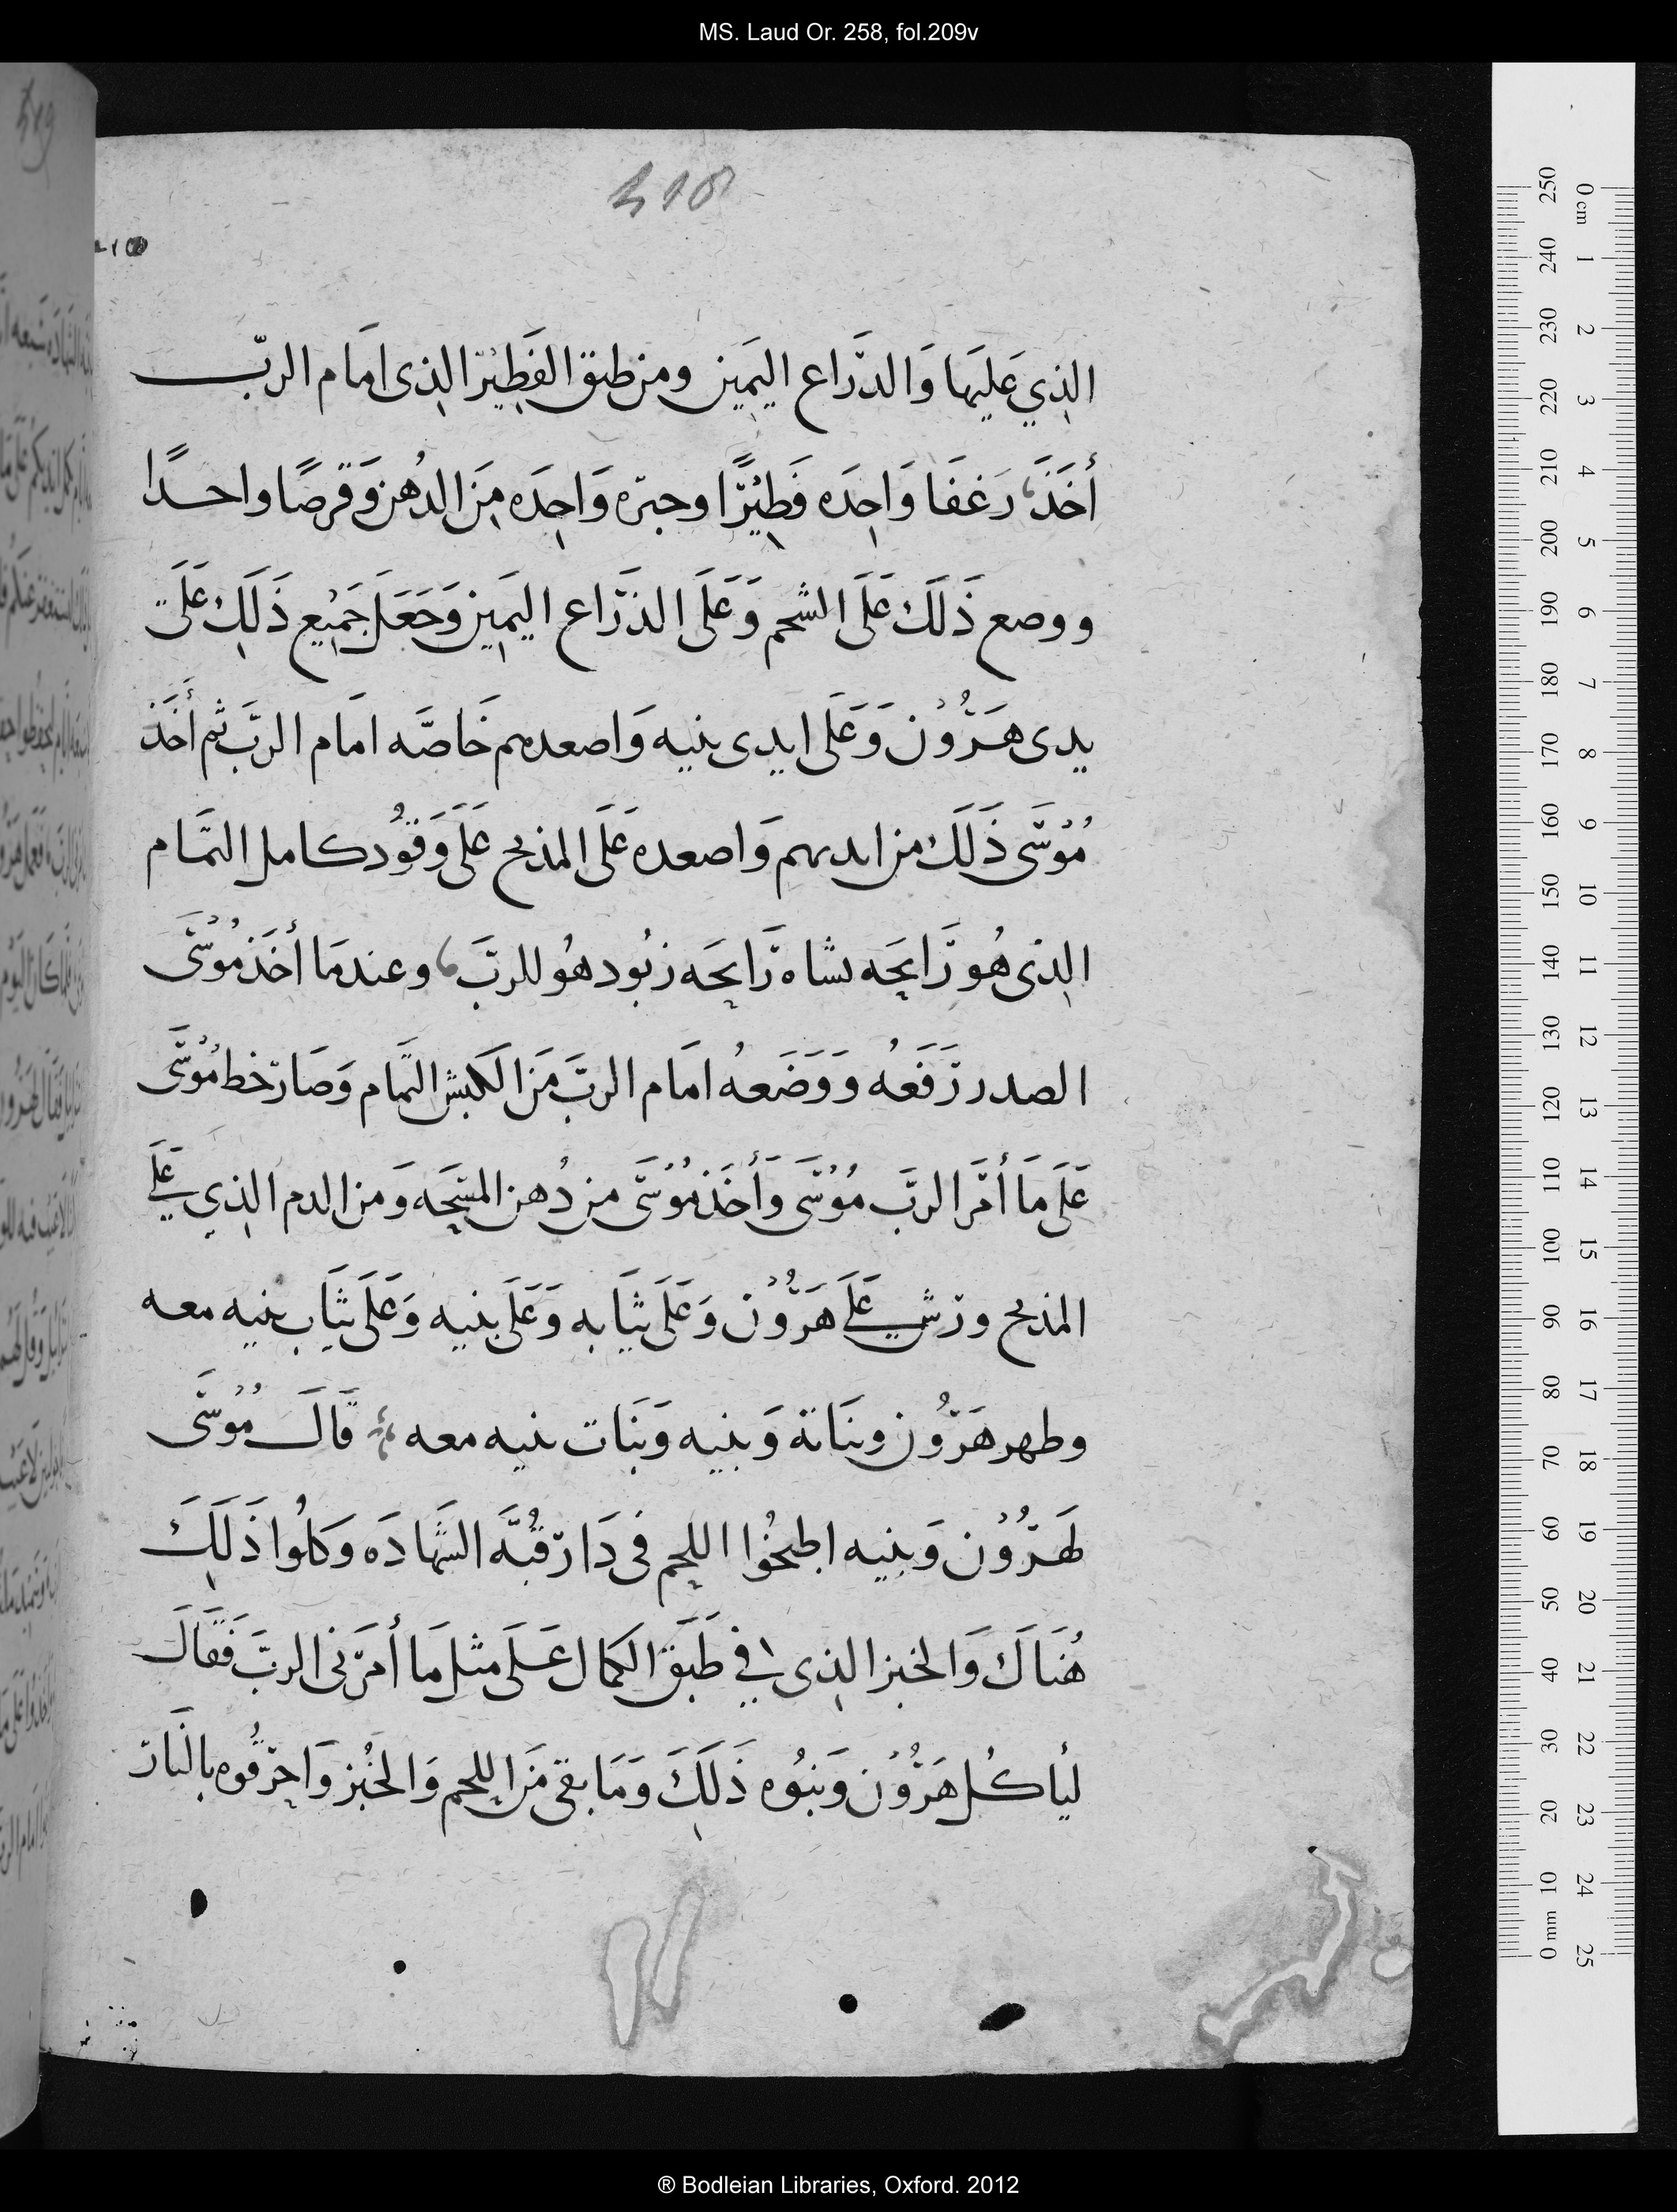 MS. Laud Or. 258, fol.209v
الذي عَليَها وَالدرَاع اليَمِين ومن طبق الفَطِيْر الذِى امَام الربّ
أخَذَ، رَغفَا وَاحِدَه فَطِيْرًا وخبزه وَاحِدَه مِنَ الدُهن وَقرصًا واحدًا
ووضع ذَلَك عَلَى الشحم وَعَلَى الذرَاع اليَمِين وَجَعَل جَمِيْع ذَلَِك عَلَى
يدى هَرُوُن وَعَلى ايدى بنيه وَاصعدهم خَاصَّه امَام الربّ ثم أَخَذ
مُوُسَى ذَلَك من ايديهم وَاصعده عَلَى المذبح عَلَى وَقوُد كامل التمَام
الذى هُو رَايحَه نشاه رَايحَه زبُود هُو للربّ، وعندمَا أخَذ مُوُسَى
الصدر رَفَعهُ وَوَضَعهُ امَام الربّ مَن الكبش التمَام وَصَار خط مُوُسَى
عَلَى مَا أمَر الربّ مُوُسَى وَأخَذ مُوُسَى من دُهن المسحَه وَمن الدم الذي عَلَى
المذبح ورش عَلَى هَرُوُن وَعَلَى ثيَابه وَعَلَى بنيه وَعَلَى ثيَاب بنيه معه
وطهر هَرُوُن وبنَاته وَبنيه وَبنَات بنيه معه قَال مُوُسَى
لهَرُوُن وَبنيه اطبخُوا اللحم فى دَار قُبَّه الشهَادَه وَكلُوا ذَلَِكَ
هُنَاكَ وَالخبز الذِى فِي طَبَق الكمال عَلَى مثل مَا أمَرنى الربّ فَقَالَ
ليأكُل هَرُوُن وَبنوُه ذَلَِكَ وَمَا بقى مَن اللحم وَالخُبز وَاحِرقُوه بالنَار
® Bodleian Libraries, Oxford. 2012